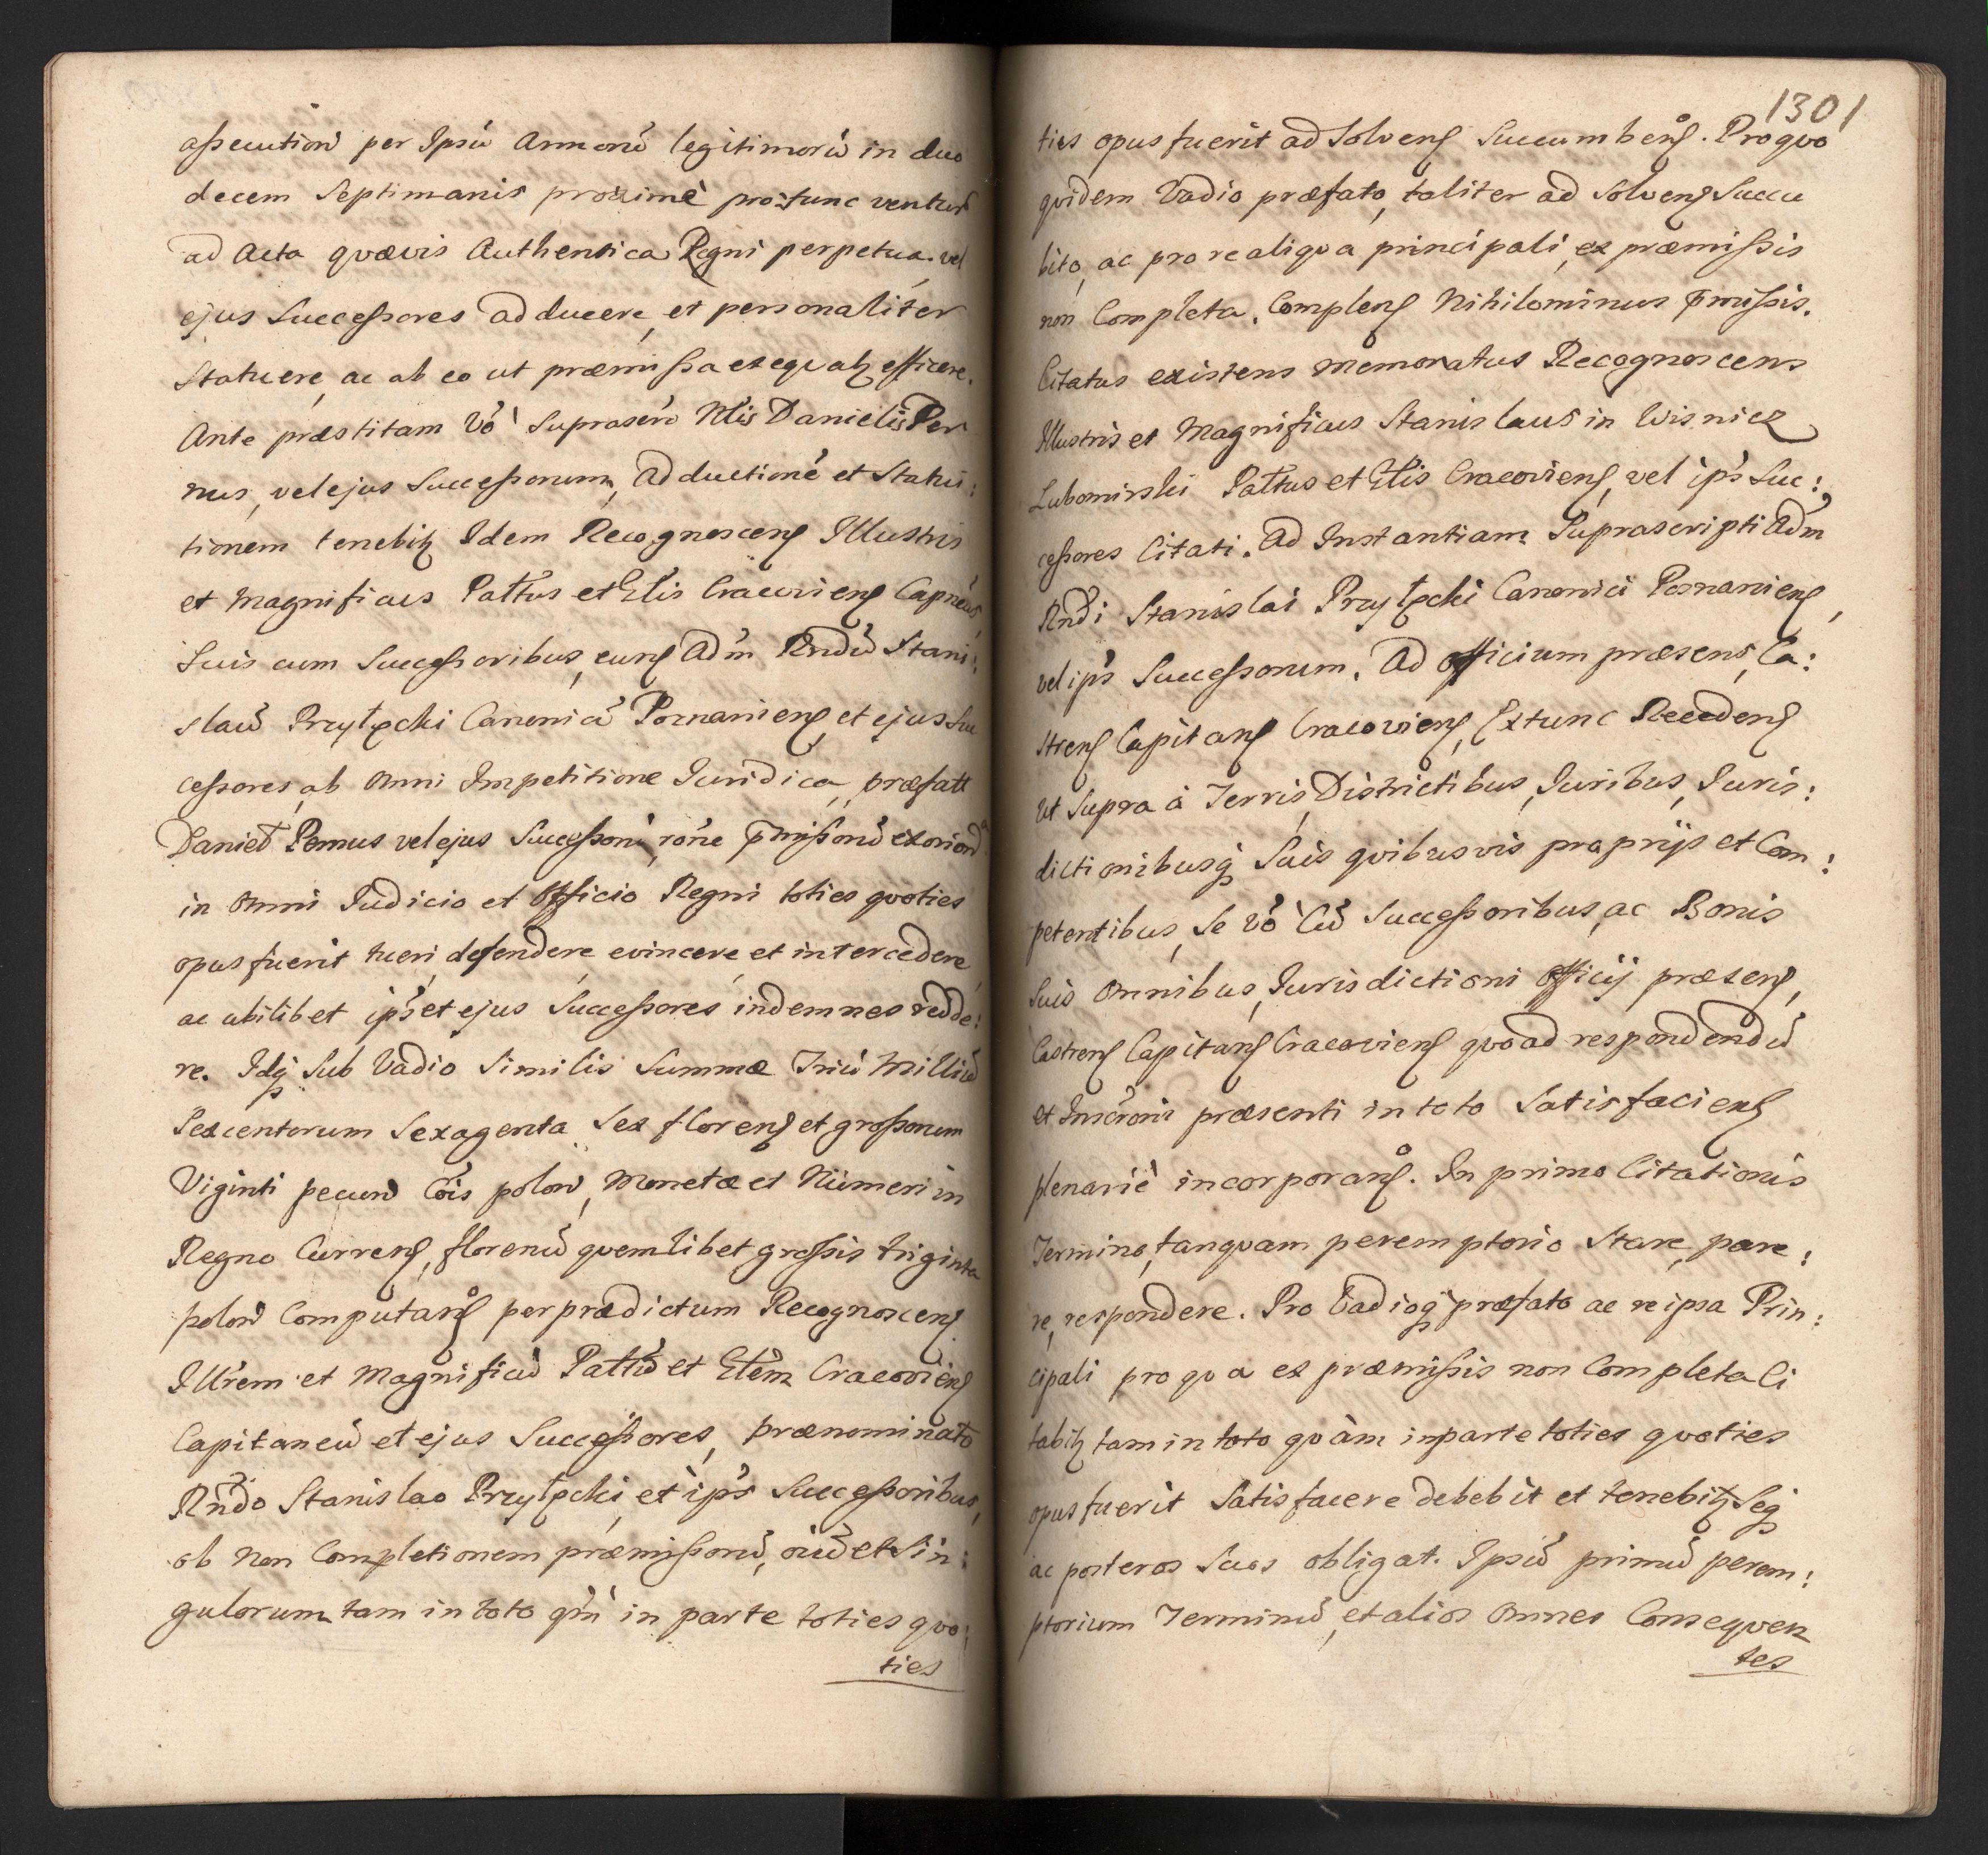 assecution per Ipsũ Annorũ legitimorũ in duo
decem Septimanis proximè pro tunc ventur
ad Acta qvævis Authentica Regni perpetua vel
ejus Successores adducere, et personaliter
Statuere, ac ab eo ut præmissa exeqvatʒ efficere.
Ante præstitam vó Suprascrō Nlis Danielis Per
nus, vel ejus Successorum, Adductionē et Statui:
tionem tenebitʒ Idem Recognoscens Illustris
et Magnificus Pałtus et Głis Cracoviens Capnéus
Suis cum Successoribus, eund Adm Rndũ Stani:
slaũ Przyłęcki Canonicũ Poznaniens, et ejus Suc
cessores, ab omni Impetitione Juridica, præfatt
Danieł Pernus vel ejus Successorũ, rōne p̄missorũ exoriend
in omni Judicio et Officio Regni toties qvoties
opus fuerit tueri, defendere, evincere, et intercedere,
ac ubilibet ip̃s et ejus Successores indemnes redde:
re. Idq̃ Sub Vadio Similis Summæ Triũ Milliũ
Sexcentorum Sexaginta Sex floren et grossorum
Viginti pecun cōis polon, Monetæ et Numeri in
Regno Currens, florenũ qvemlibet grossis triginta
polon Computans per prædictum Recognoscens
Illrem et Magnificũ Pałtũ et Głēm Cracoviens
Capitaneũ et ejus Successores, prænominato
Rndo Stanislao Przyłęcki, et ip̃s Successoribus,
ob non Completionem præmissorũ, oiũ et Sin:
gulorum tam in toto qm̃ in parte toties qvo:
ties
1301
ties opus fuerit ad Solvens Succumbens. Pro qvo
qvidem Vadio præfato, taliter ad Solvens Succu
bito, ac pro re aliqva principali, ex præmissis
non Completa. Complens Nihilominus p̄missis.
Citatus existens memoratus Recognoscens
Illustris et Magnificus Stanislaus in Wisnicz
Lubomirski Pałtus et Głis Cracoviens, vel ip̃s Suc:
cessores Citati. Ad Instantiam Suprascripti Adm
Rndi Stanislai Przyłęcki Canonici Posnaniens,
vel ip̃s Successorum. Ad officium præsens, Ca:
strens Capitans Cracoviens, Extunc Recedens
ut Supra à Terris, Districtibus, Juribus, Juris:
dictionibusq̃ Suis qvibusvis proprijs et Com:
petentibus, Se vó Cũ Successoribus, ac Bonis
Suis Omnibus, Jurisdictioni Officij præsens,
Castrens Capitans Cracoviens qvoad respondendũ
et Inscrōni præsenti in toto Satisfaciens
plenariè incorporans. In primo Citationis
Termino, tanqvam peremptorio Stare, pare:
re, respondere. Pro Vadioq̃ præfato ac re ipsa Prin:
cipali pro qva ex præmissis non Completa Ci
tabitʒ tam in toto qvàm in parte toties qvoties
opus fuerit Satisfacere debebit et tenebitʒ Seq̃
ac posteros Suos obligat. Ipsũ primũ perem:
ptorium Terminũ, et alios Omnes Conseqven
tes